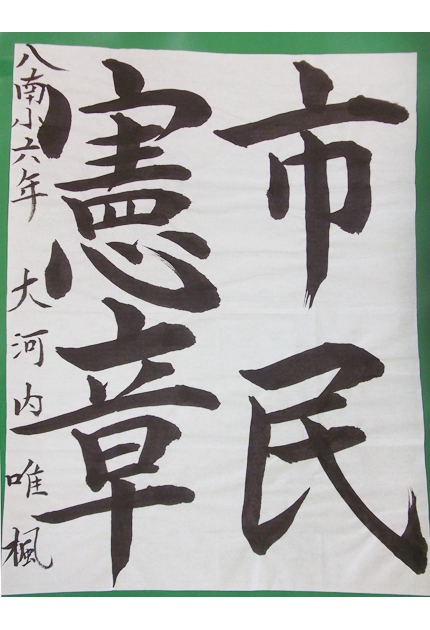 市民
憲章
八南小六年 大河内唯楓